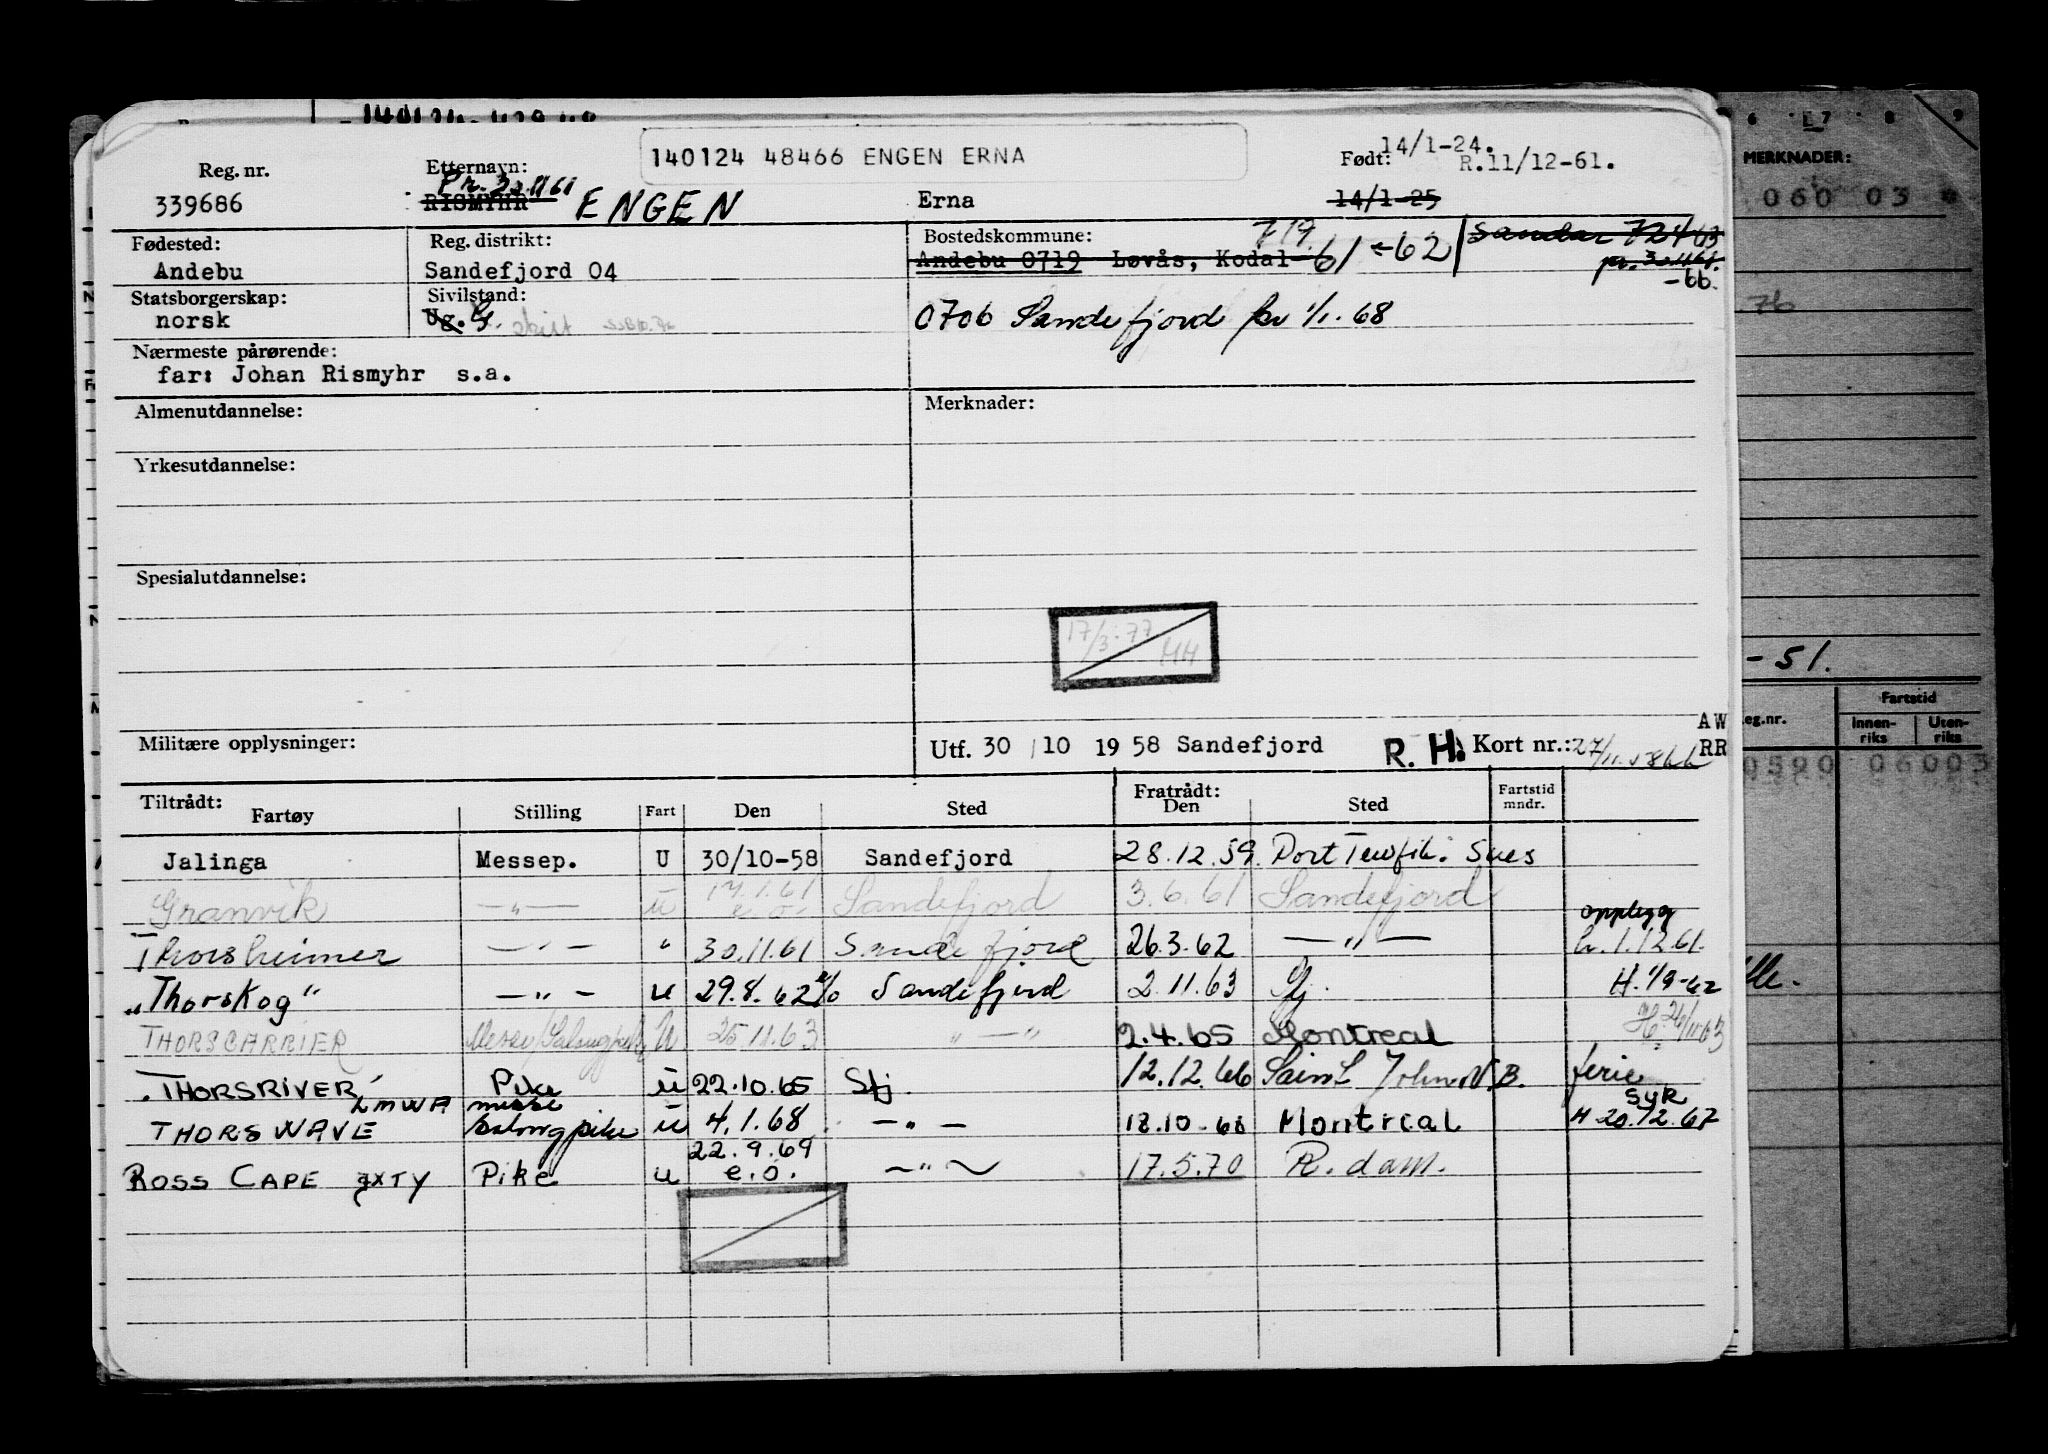 140124 48466 ENGEN ERNA
Reg. nr. Etternavn: Født: 14/1-24.
R.11/12-61.
Pr. 30.11 61
339686 RISMYHR ENGEN Erna 14/1-25
Fødested: Reg. distrikt: Bostedskommune: 719
Andebu Sandefjord 04 Andebu 0719 Løvås, Kodal 61-62 Sandar 724 63
pr. 30.11.61.
-66.
Statsborgerskap: Sivilstand:
norsk Ug. G. skilt 0706 Sandefjord fra 1/1. 68
Nærmeste pårørende:
far: Johan Rismyhr s.a.
Almenutdannelse: Merknader:
Yrkesutdannelse:
Spesialutdannelse:
17/3-77 HH
Militære opplysninger: Utf. 30/10 1958 Sandefjord R. H. Kort nr.: 27/11.58
AW
RR
Tiltrådt: Fratrådt: Fartstid
Fartøy Stilling Fart Den Sted Den Sted mndr.
Jalinga Messep. U 30/10-58 Sandefjord 28.12.59. Port Tewfik. Sues
Granvik —"— u 17.1.61 e.o. Sandefjord 3.6.61 Sandefjord
opplegg
Thorsheimer —"— " 30.11.61 Sandefjord 26.3.62 —"— 1.12.61.
"Thorskog" —"— u 29.8.62 Sandefjord 2.11.63 Sfj. H. 1/9-62
THORSCARRIER Messe/Salongpike U 25.11.63 "—" 2.4.65 Montreal H. 26/11 63
THORSRIVER Pike u 22.10.65 Sfj. 12.12.66 Saint John N.B. ferie
LMWA messe syk
THORSWAVE salongpike u 4.1.68 —"— 18.10.68 Montreal H 20.12.67
22.9.69
ROSS CAPE JXTY Pike u e.o. —"— 17.5.70 R.dam.
6 7 8 9
MERKNADER:
060 03
76
-51.
Fartstid
eg.nr. Innen-riks Uten-riks
0500 06003